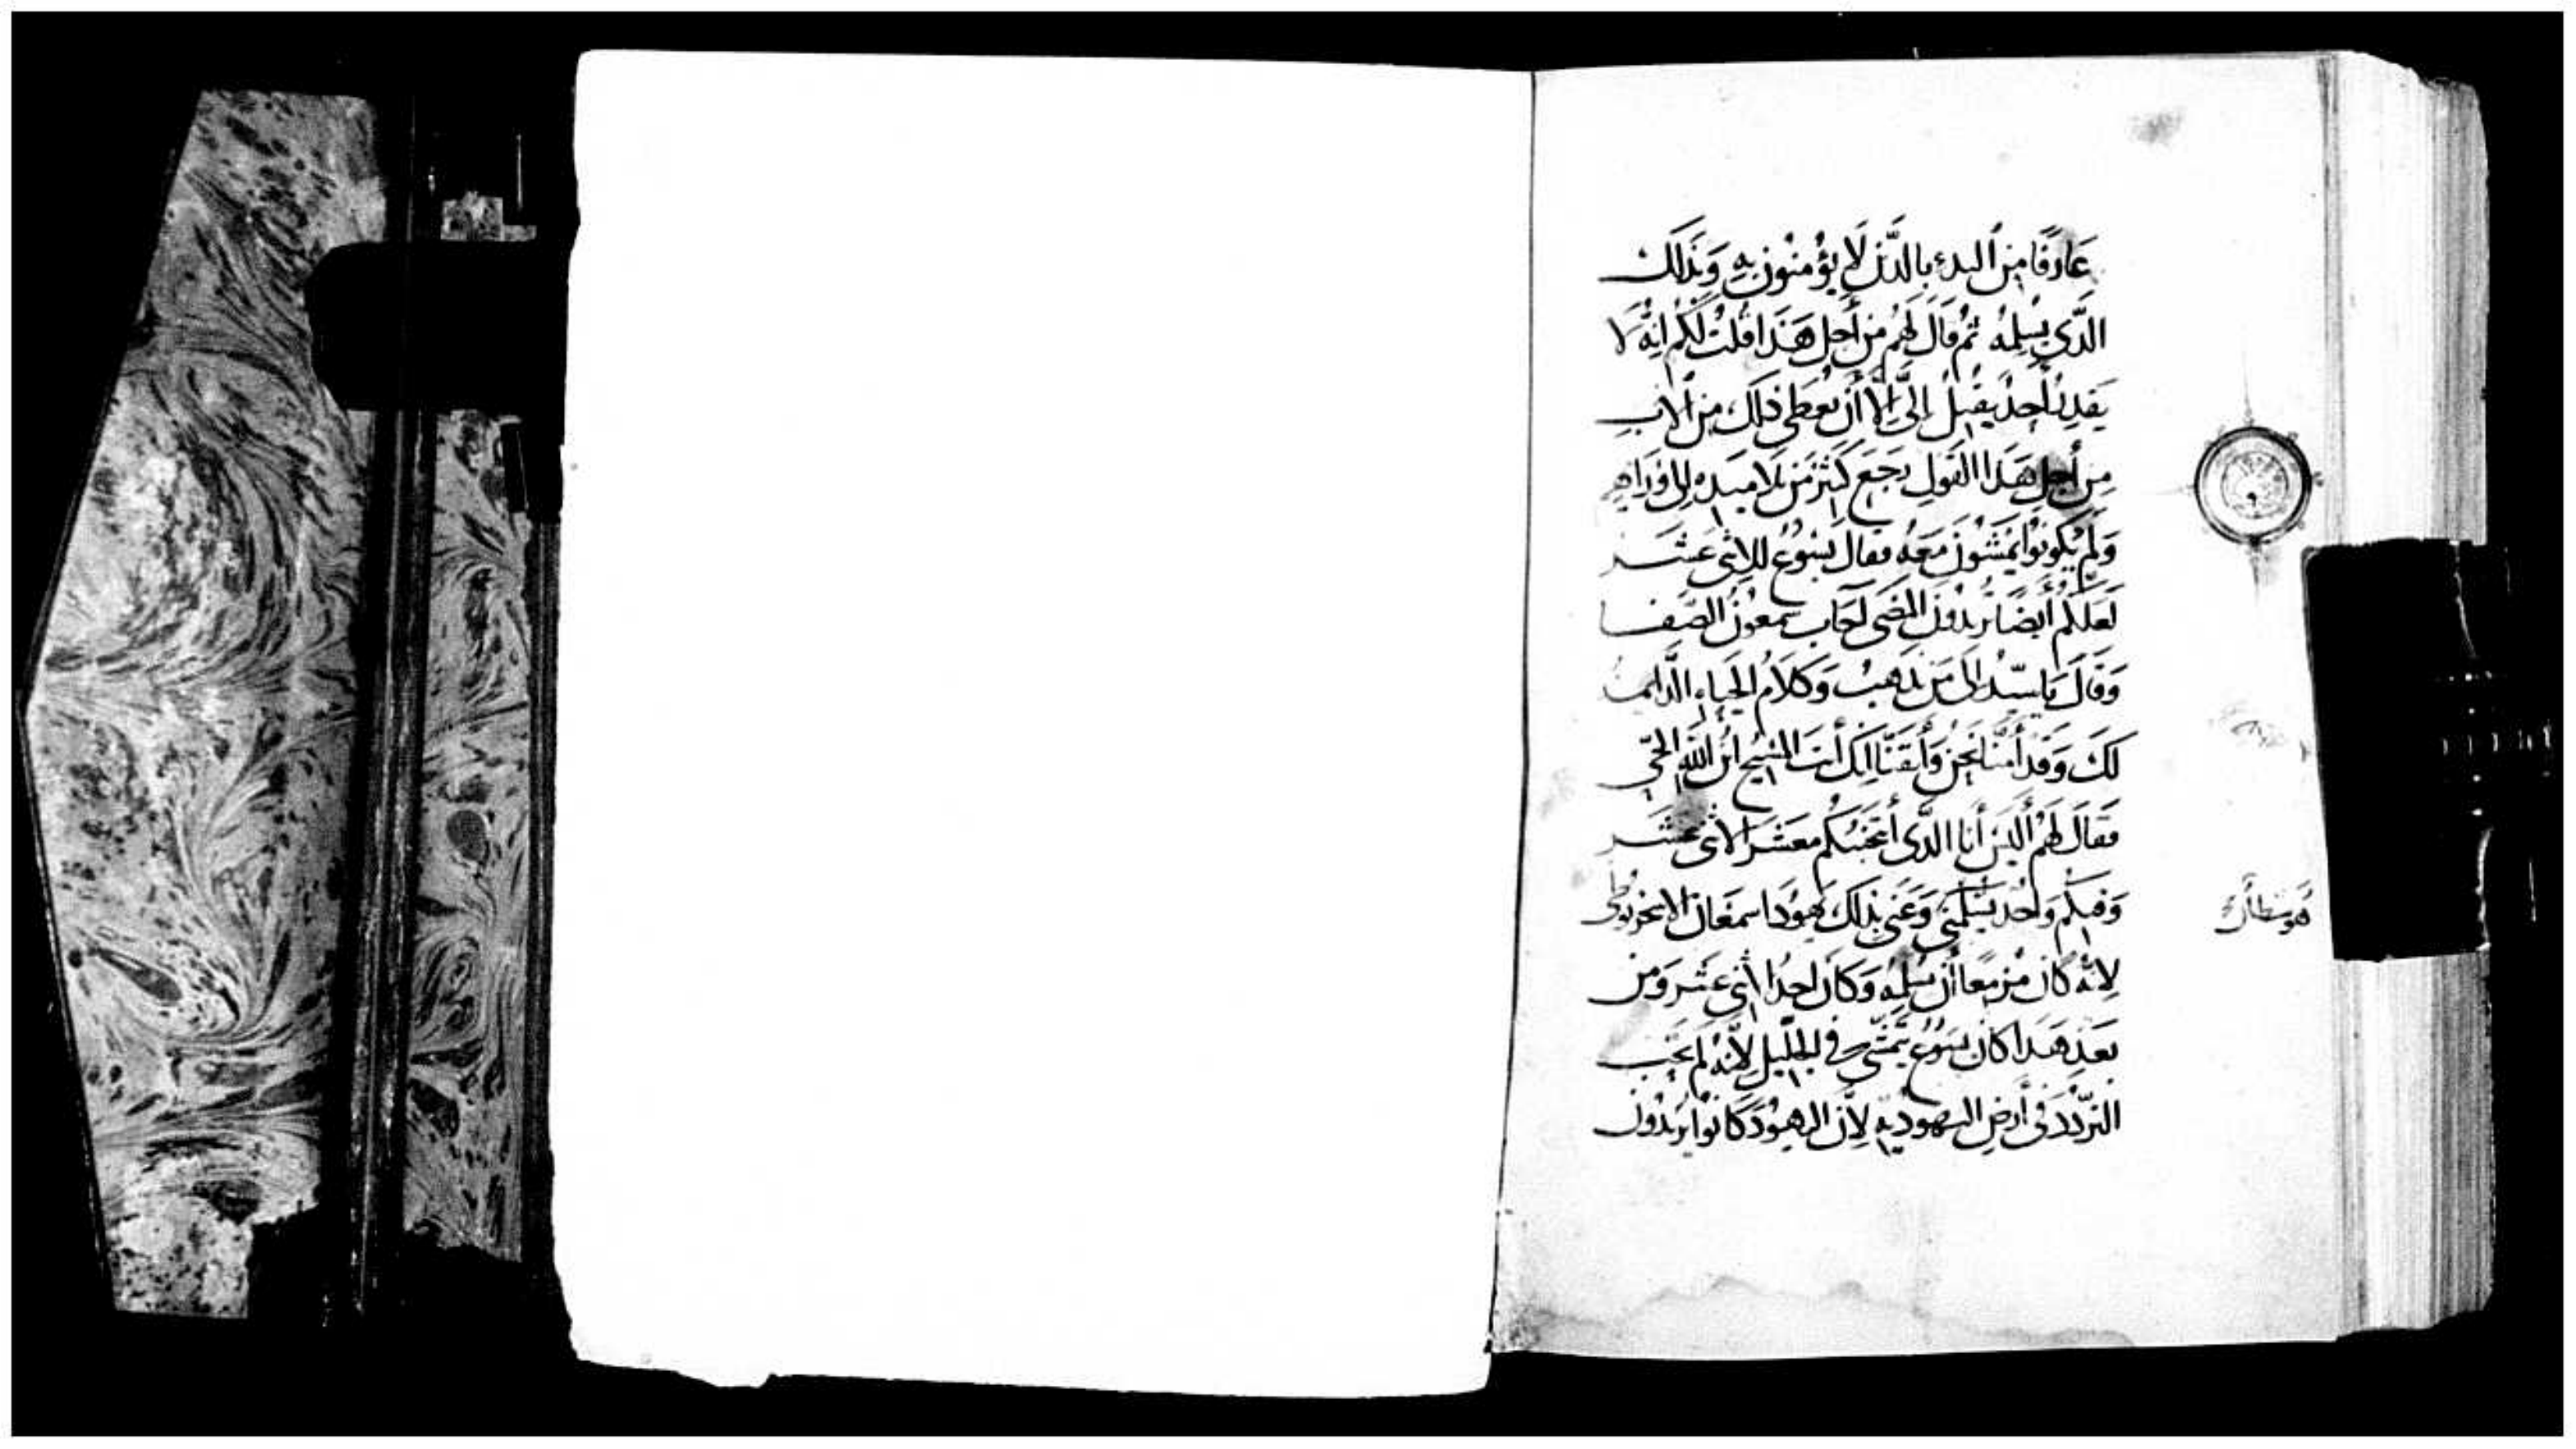 عَارفًا مِن البدء بالدَّين لَا يؤمنون بِهِ وَبذلك
الدَّى يسْلِمُه ثمُ قَالَ لهُم من أَجل هَذا قُلتُ لكُم انهُ لا
يَقدِرُ أحدٌ يقبِلُ إلىَّ إِلّا أن يُعطى ذلك من الابِ
مِن أجل هَذا القول رجَعَ كثيرٌ مَن تلاميده إلى وَرَاهم
وَلَم يكونوا يمشُونَ مَعهُ فقال يسُوع للاثنى عَشر
لَعَلكم أيضًا تريدُونَ المُضى أجَاب سمعوُن الصَفا
وَقالَ يَا سيّد إلى مَن نذهب وَكلامُ الحياه الدايمه
لكَ وَقد أمنّا نحن وَأيقَنّا إنك أنتَ المسيح ابن الله الحَيّ
فقالَ لهُم أليسَ أنا الدَّى أنتخبتكُم معشرَ الاثنى عشر
وَفيكُم وَاحدٌ يسْلمنى وَعَنى بذلك يهوُدا سمعَان الاسخريوطى
لانه كان مزمعا أن يسْلمه وَكان احدُ الاثنى عشر وَمن
بَعد هَدا كان يسُوع يتمَشى فى الجليل لأنهُ لم يحب
التردّد فى أرض اليهوديه لِأنّ اليهوُدَ كانوا يريدُون